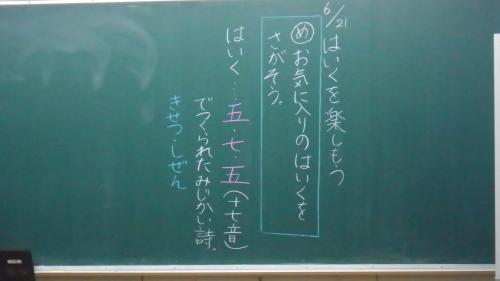 6/21 はいくを楽しもう
め お気に入りのはいくを
さがそう。
はいく…五・七・五(十七音)
でつくられたみじかい詩。
きせつ・しぜん